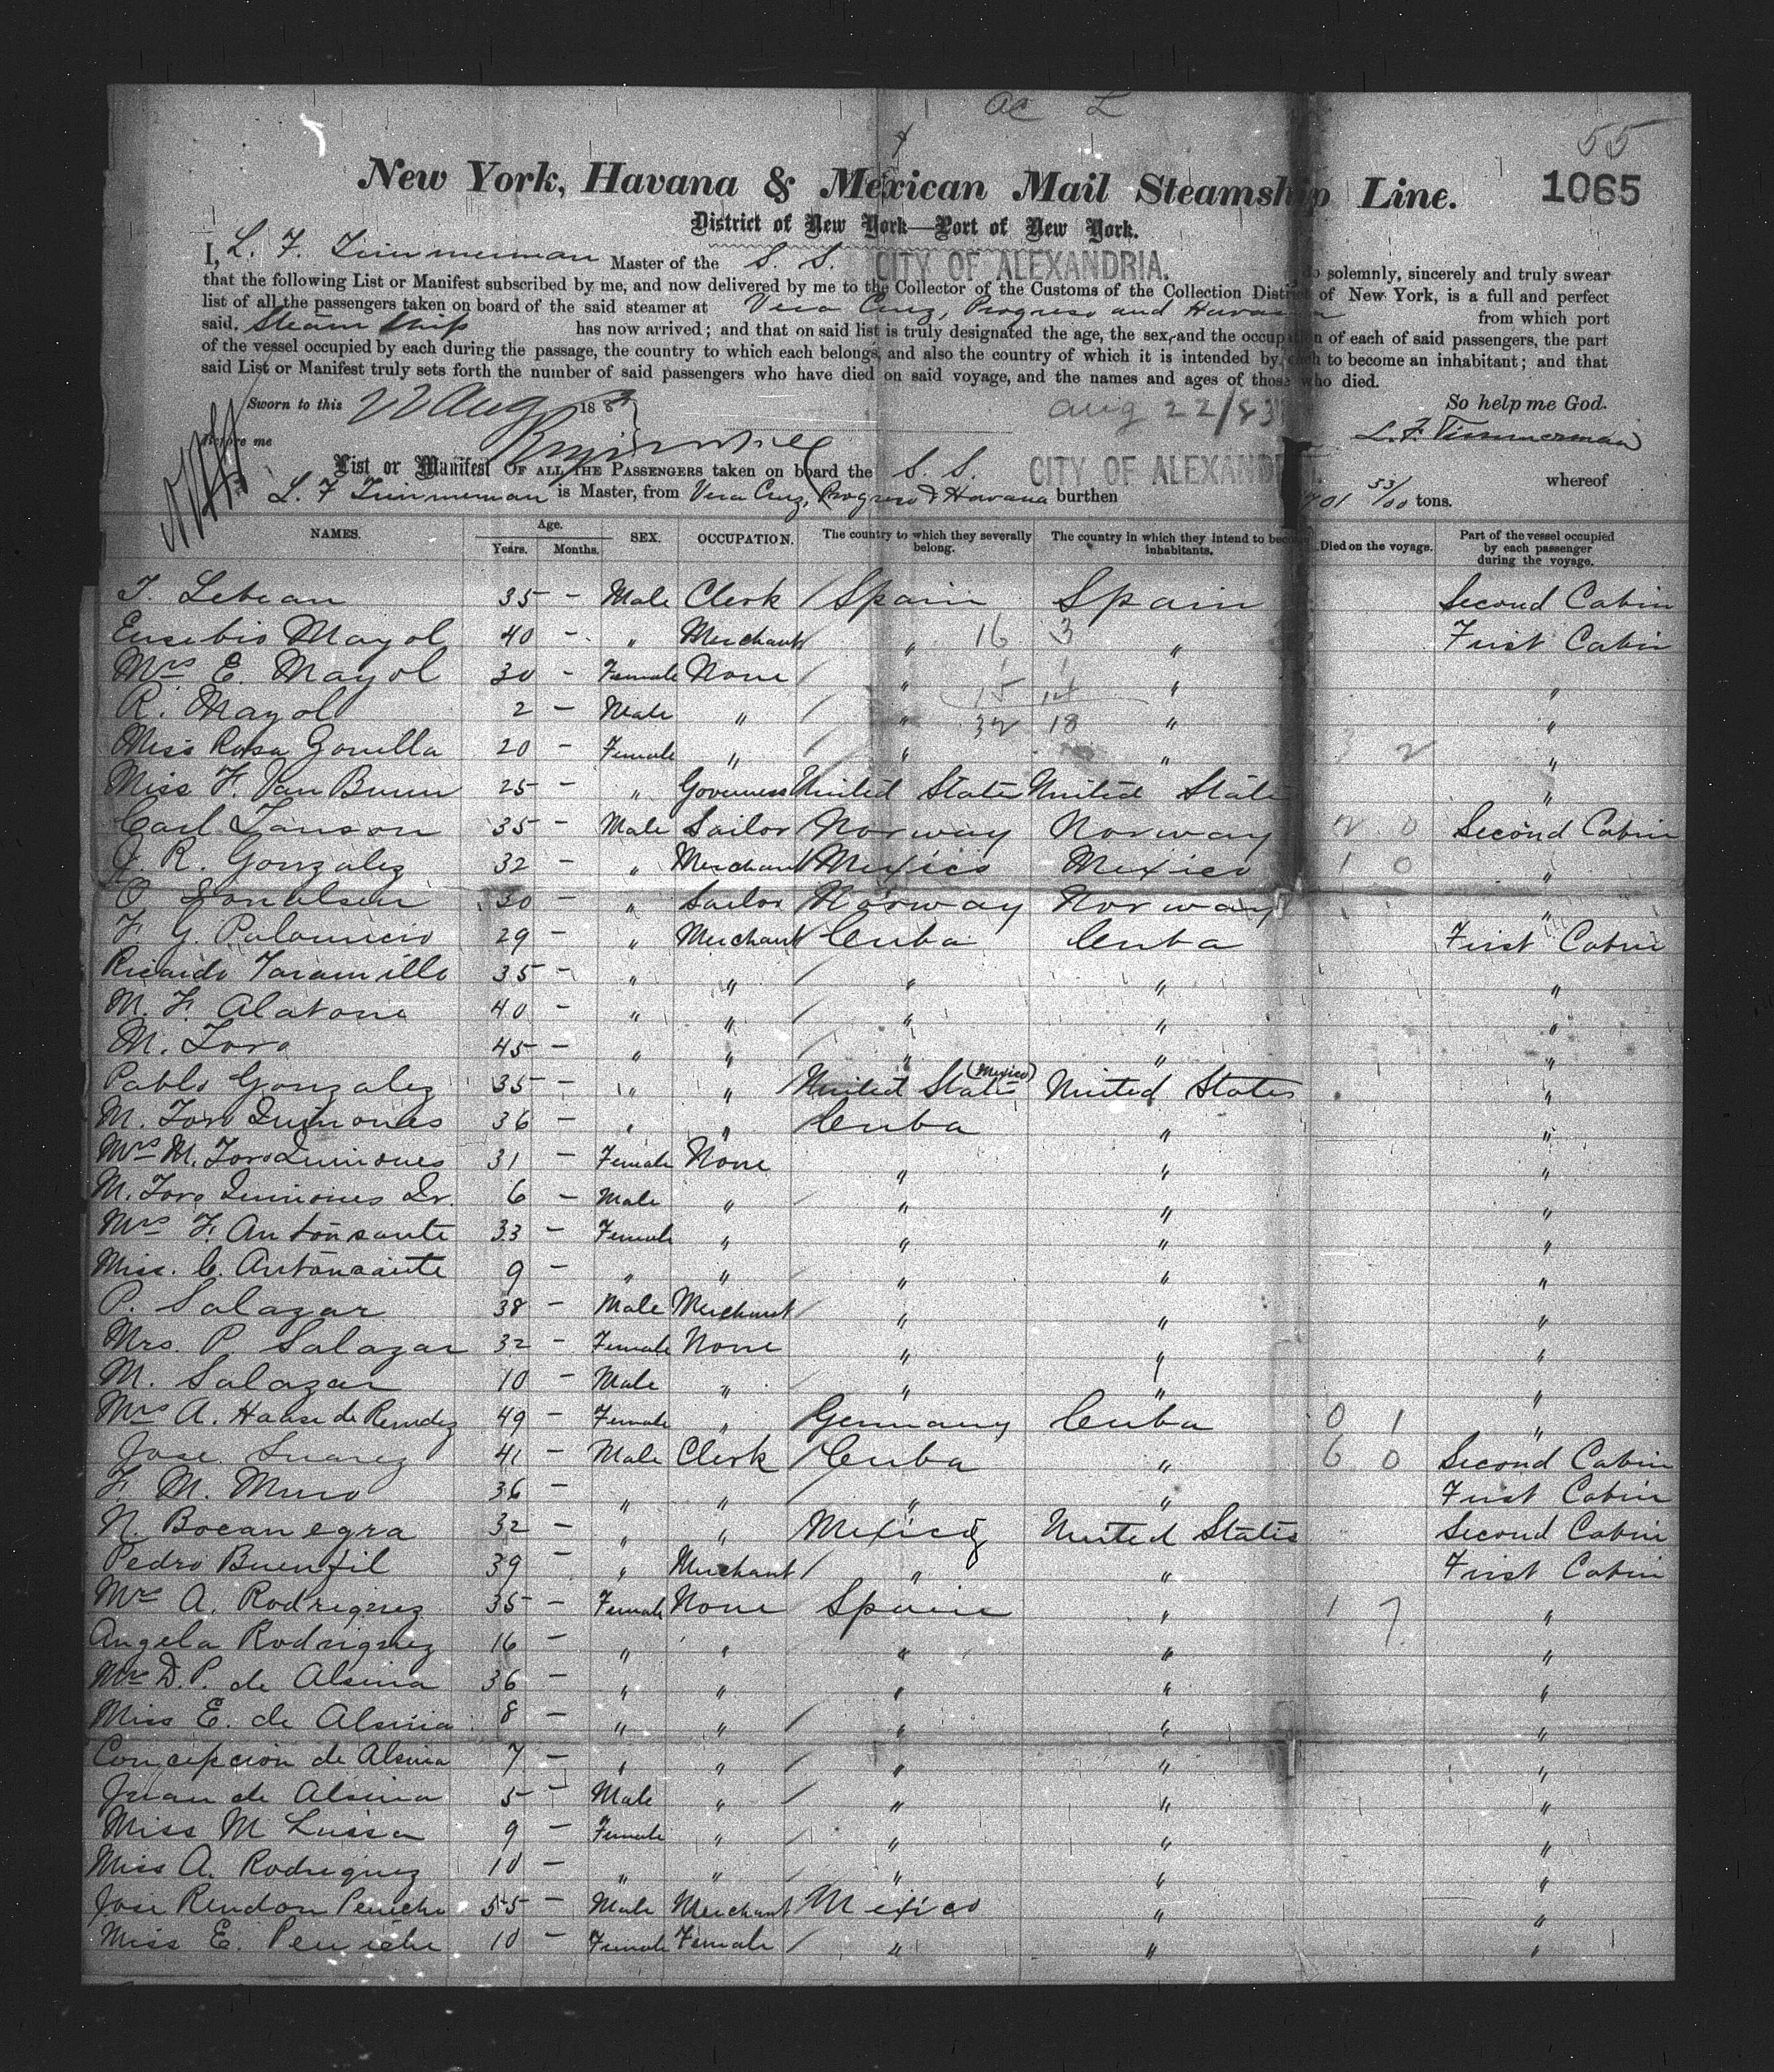 ac L
55
New York, Havana & Mexican Mail Steamship Line. 1065
District of New York—Port of New York.
I, L. F. Timmerman Master of the S. S. CITY OF ALEXANDRIA. do solemnly, sincerely and truly swear
that the following List or Manifest subscribed by me, and now delivered by me to the Collector of the Customs of the Collection District of New York, is a full and perfect
list of all the passengers taken on board of the said steamer at Vera Cruz, Progreso and Havana from which port
said Steam Ship has now arrived; and that on said list is truly designated the age, the sex, and the occupation of each of said passengers, the part
of the vessel occupied by each during the passage, the country to which each belongs, and also the country of which it is intended by each to become an inhabitant; and that
said List or Manifest truly sets forth the number of said passengers who have died on said voyage, and the names and ages of those who died.
Sworn to this 22 Aug 1883 aug 22/83 So help me God.
Before me L. F. Timmerman
List or Manifest OF ALL THE PASSENGERS taken on board the S. S. CITY OF ALEXANDRIA. whereof
L. F Timmerman is Master, from Vera Cruz, Progreso & Havana burthen 53/100 tons.
NAMES. Age. Years. Months. SEX. OCCUPATION. The country to which they severally belong. The country in which they intend to become inhabitants. Died on the voyage. Part of the vessel occupied by each passenger during the voyage.
35 - Male Clerk Spain Spain Second Cabin
Eusebio Mayol 40 - " Merchant " 16 3 " First Cabin
Mrs E. Mayol 30 - Female None " " "
R. Mayol 2 - Male " " 32 18 " "
Miss Rosa 20 - Female " " " 2 "
Miss F. Van Buren 25 - " Governess United States United States "
Carl 35 - Male Sailor Norway Norway 2 0 Second Cabin
J R. Gonzalez 32 - " Merchant Mexico Mexico 1 0 "
O 30 - " Sailor Norway Norway "
F. G. 29 - " Merchant Cuba Cuba First Cabin
Ricardo Jaramillo 35 - " " " " "
M. F. Alatorre 40 - " " " " "
M. Toro 45 - " " " " "
Pablo Gonzalez 35 - " " United States (Mexico) United States "
M. Toro Quinones 36 - " " Cuba " "
Mrs M. Toro Quinones 31 - Female None " " "
M. Toro Quinones Jr. 6 - Male " " " "
Mrs F. Antonsante 33 - Female " " " "
Miss. C. Antonsante 9 - " " " " "
P. Salazar 38 - Male Merchant " " "
Mrs. P. Salazar 32 - Female None " " "
M. Salazar 10 - Male " " " "
Mrs A. Haase de 49 - Female " Germany Cuba 0 1 "
Jose Suarez 41 - Male Clerk Cuba " 6 0 Second Cabin
F. M. Muro 36 - " " " " First Cabin
N. Bocanegra 32 - " " Mexico United States Second Cabin
Pedro Buenfil 39 - " Merchant " " First Cabin
Mrs A. Rodriguez 35 - Female None Spain " 1 7 "
Angela Rodriguez 16 - " " " " "
Mrs D. P. de Alsina 36 - " " " " "
Miss E. de Alsina 8 - " " " " "
Concepcion de Alsina 7 - " " " " "
Juan de Alsina 5 - Male " " " "
Miss M 9 - Female " " " "
Miss A. Rodriguez 10 - " " " " "
Jose Rendon Peniche 55 - Male Merchant Mexico " "
Miss E. Peniche 10 - Female Female " " "